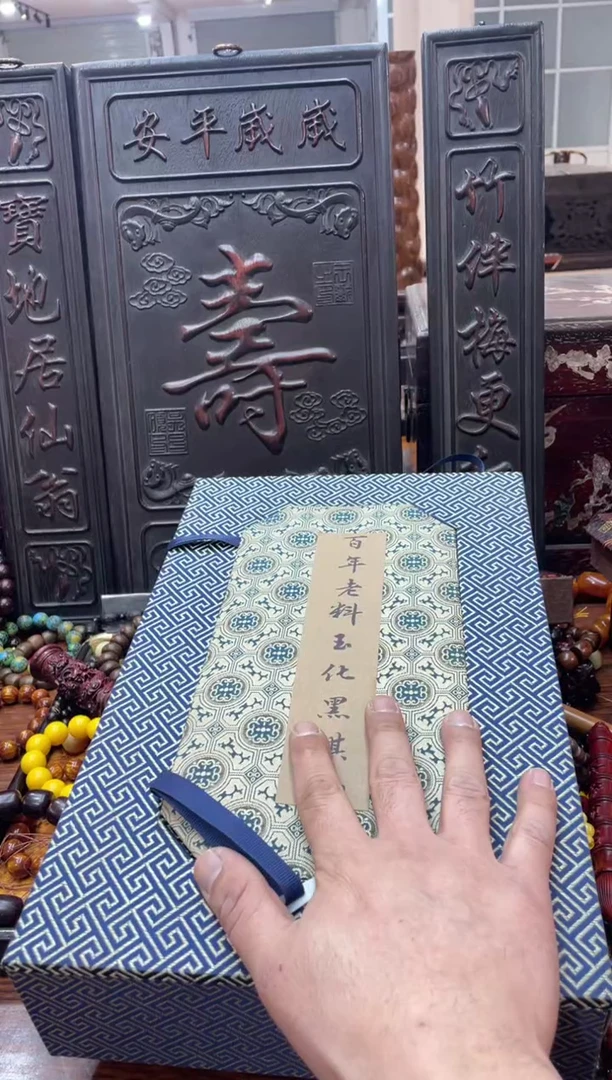 嵗嵗平安
壽
竹伴梅更
寶地居仙翁
百年老料玉化黑